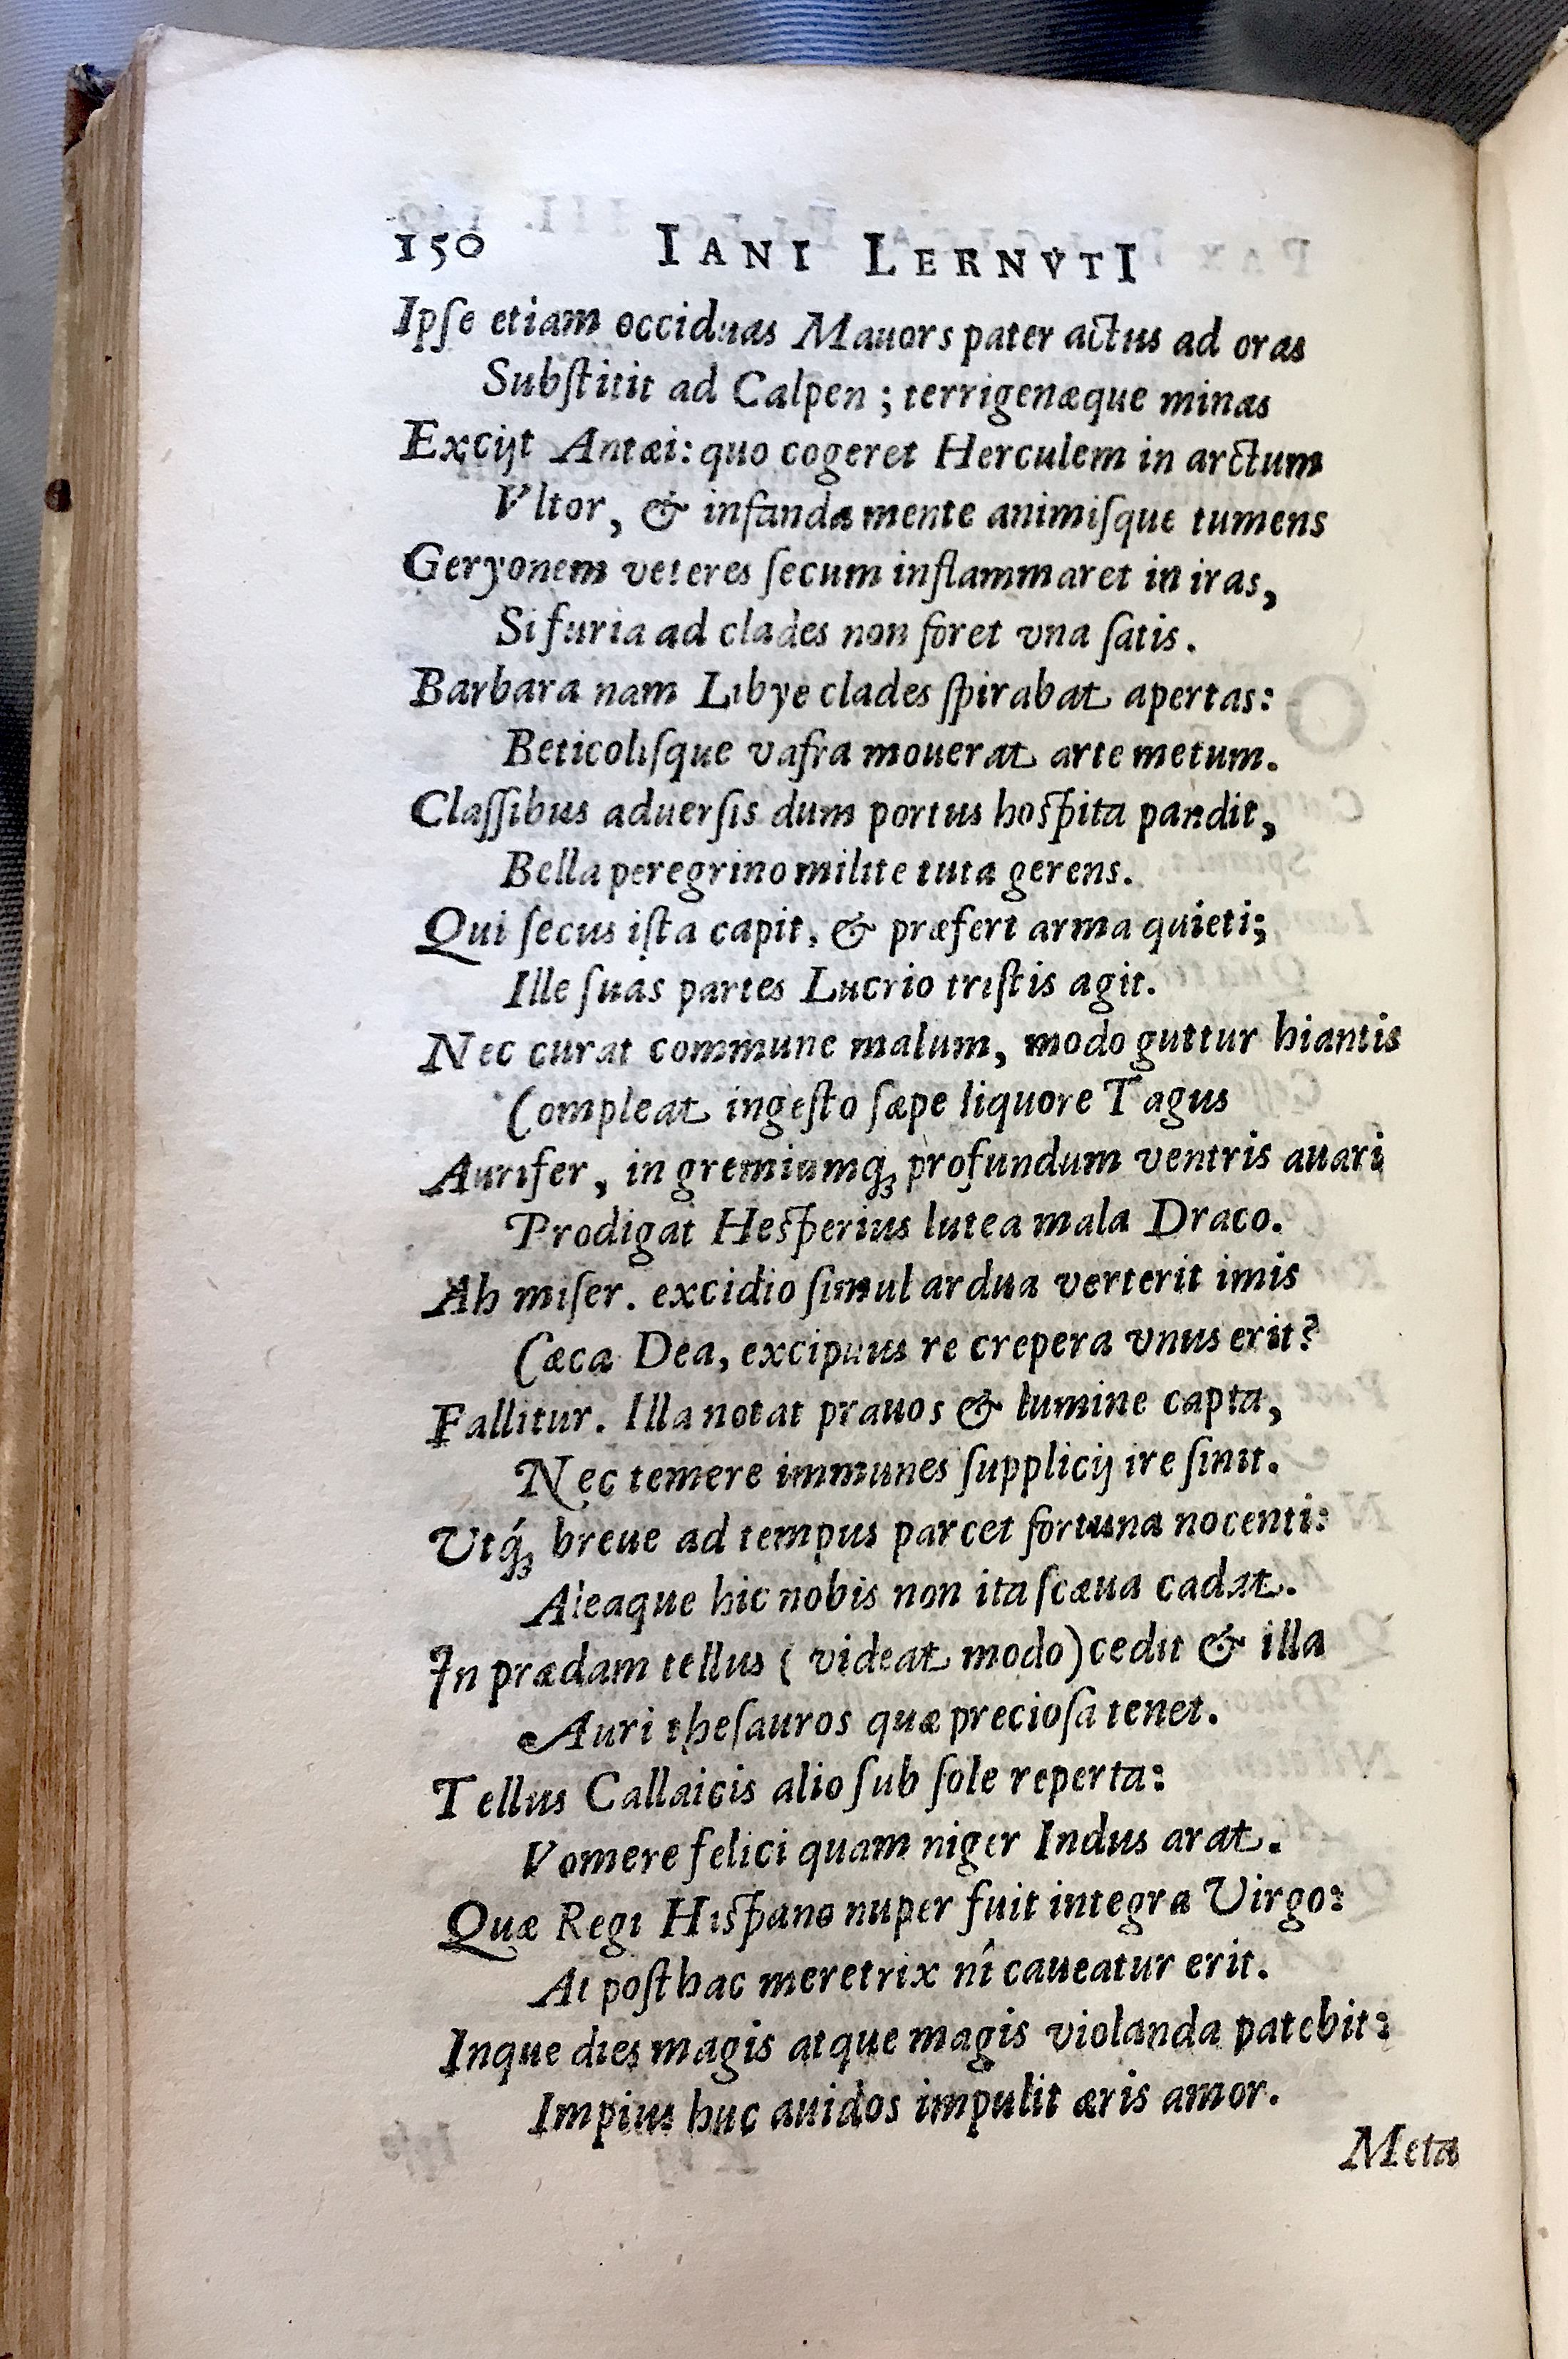 150 IANI LERNVTI
Ipſe etiam occiduas Mauors pater actus ad oras
Subſtitit ad Calpen ; terrigenæque minas
Excijt Antæi: quo cogeret Herculem in arctum
Vltor, & infanda mente animiſque tumens
Geryonem veteres ſecum inflammaret in iras,
Si furia ad clades non foret vna ſatis.
Barbara nam Libye clades ſpirabat apertas:
Beticoliſque vafra mouerat arte metum.
Claſſibus aduerſis dum portus hoſpita pandit,
Bella peregrino milite tuta gerens.
Qui ſecus iſta capit, & præfert arma quieti;
Ille ſuas partes Lucrio triſtis agit.
Nec curat commune malum, modo guttur hiantis
Compleat ingeſto ſæpe liquore Tagus
Aurifer, in gremiumq́; profundum ventris auari
Prodigat Heſperius lutea mala Draco.
Ah miſer. excidio ſimul ardua verterit imis
Cæca Dea, excipuus re crepera vnus erit?
Fallitur. Illa notat prauos & lumine capta,
Nec temere immunes ſupplicij ire ſinit.
Utq́; breue ad tempus parcet fortuna nocenti:
Aleaque hic nobis non ita ſcæua cadat.
In prædam tellus ( videat modo) cedit & illa
Auri theſauros quæ precioſa tenet.
Tellus Callaicis alio ſub ſole reperta:
Vomere felici quam niger Indus arat.
Quæ Regi Hiſpano nuper fuit integra Virgo:
At poſthac meretrix nî caueatur erit.
Inque dies magis atque magis violanda patebit:
Impius huc auidos impulit æris amor.
Meta